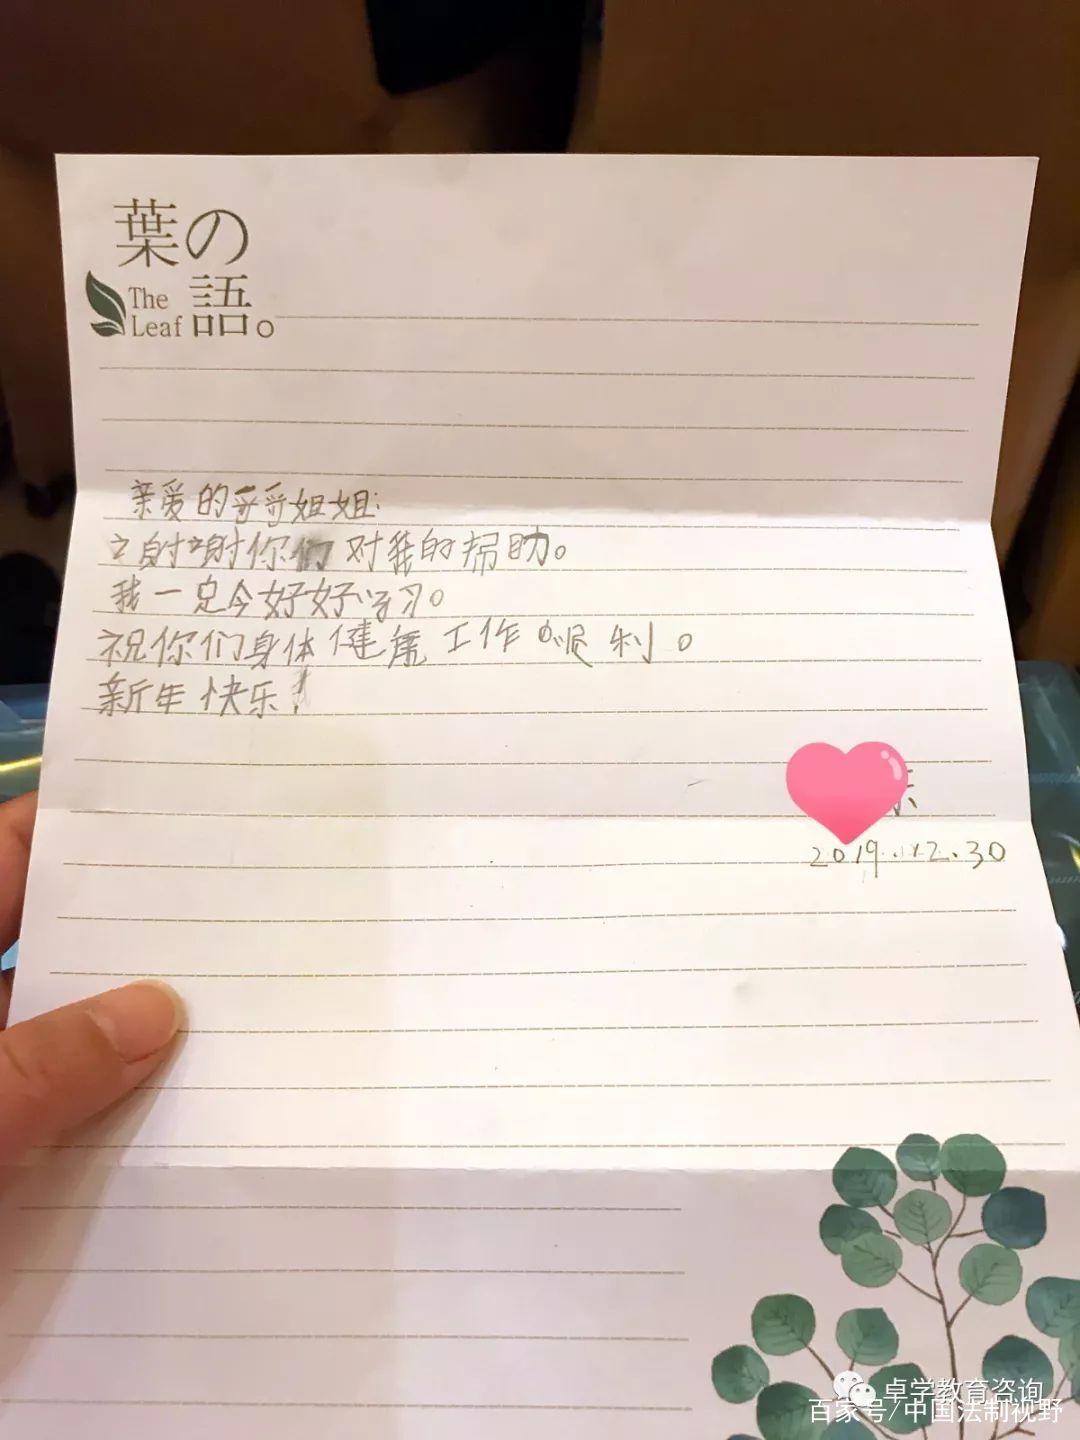 葉の
The
Leaf
語。
亲爱的哥哥姐姐:
谢谢你们对我的帮助。
我一定会好好学习。
祝你们身体健康工作顺利。
新年快乐!
2019.12.30
卓学教育咨询
百家号/中国法制视野